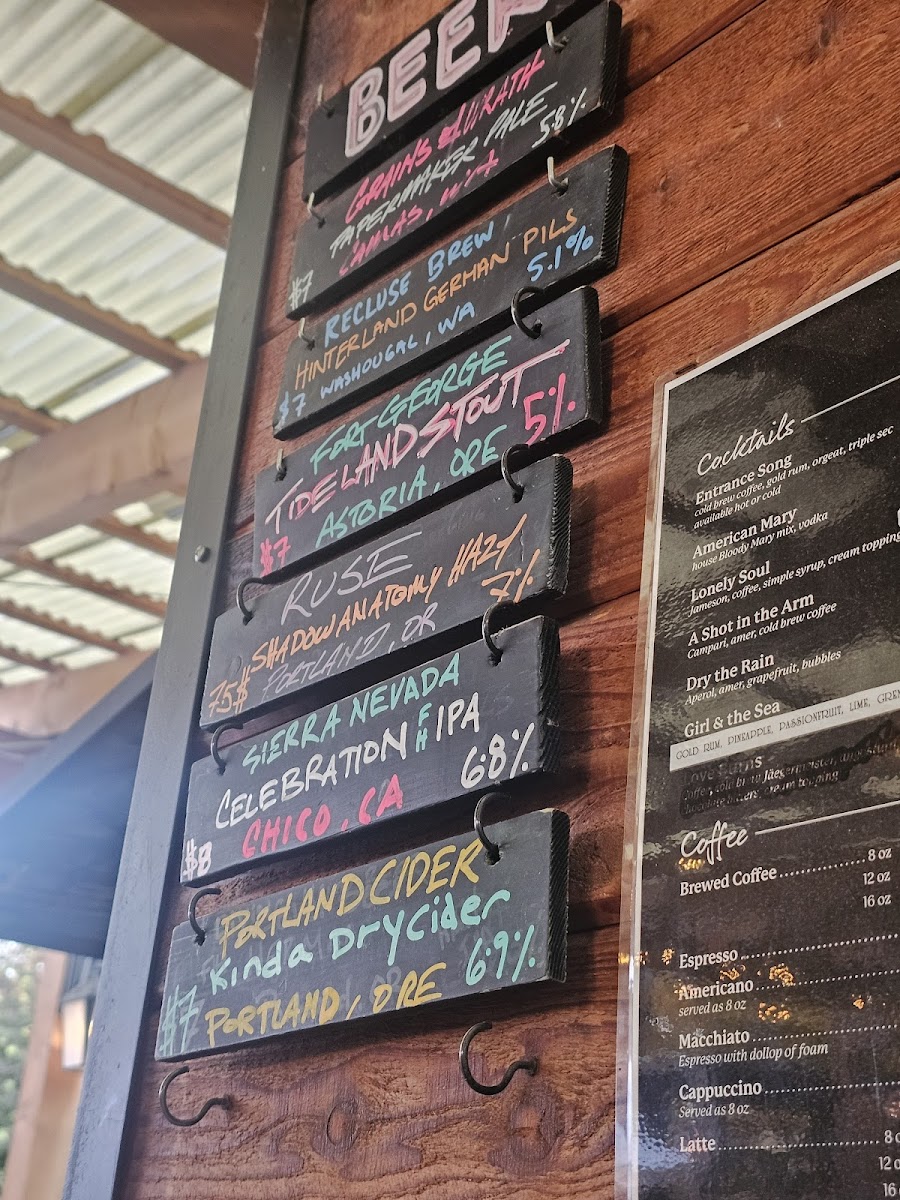 BEER
GRAINS of WRATH
PAPERMAKER PALE
CAMAS, WA 5.8%
$7
RECLUSE BREW,
HINTERLAND GERMAN PILS
$7 WASHOUGAL, WA 5.1%
FORT GEORGE
TIDELAND STOUT
$7 ASTORIA, ORE 5%
RUSE
SHADOW ANATOMY HAZY
7.5$ PORTLAND, OR 7%
SIERRA NEVADA
CELEBRATION FH IPA
$8 CHICO, CA 6.8%
PORTLAND CIDER
Kinda Dry Cider
$7 PORTLAND, ORE 6.9%
Cocktails
Entrance Song
cold brew coffee, gold rum, orgeat, triple sec
available hot or cold
American Mary
house Bloody Mary mix, vodka
Lonely Soul
Jameson, coffee, simple syrup, cream topping
A Shot in the Arm
Campari, amer, cold brew coffee
Dry the Rain
Aperol, amer, grapefruit, bubbles
Girl & the Sea
GOLD RUM, PINEAPPLE, PASSIONFRUIT, LIME,
Coffee
Brewed Coffee 8 oz
12 oz
16 oz
Espresso
Americano
served as 8 oz
Macchiato
Espresso with dollop of foam
Cappuccino
Served as 8 oz
Latte 8 o
12 o
16